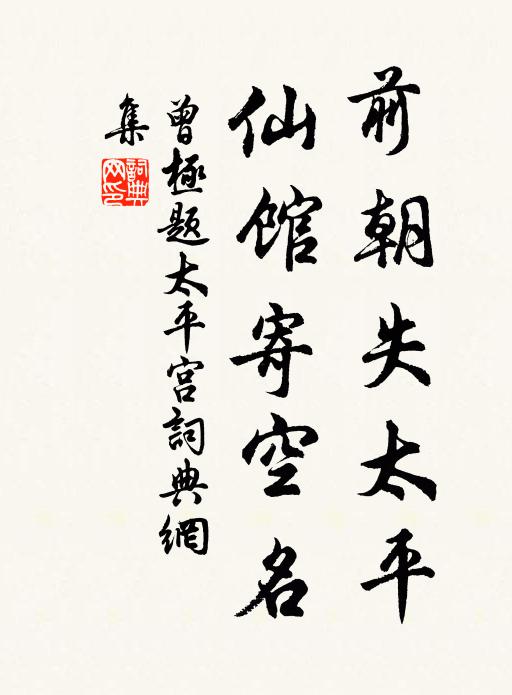 前朝失太平
仙馆寄空名
曾極题太平宫詞典網
集
詞典
网印